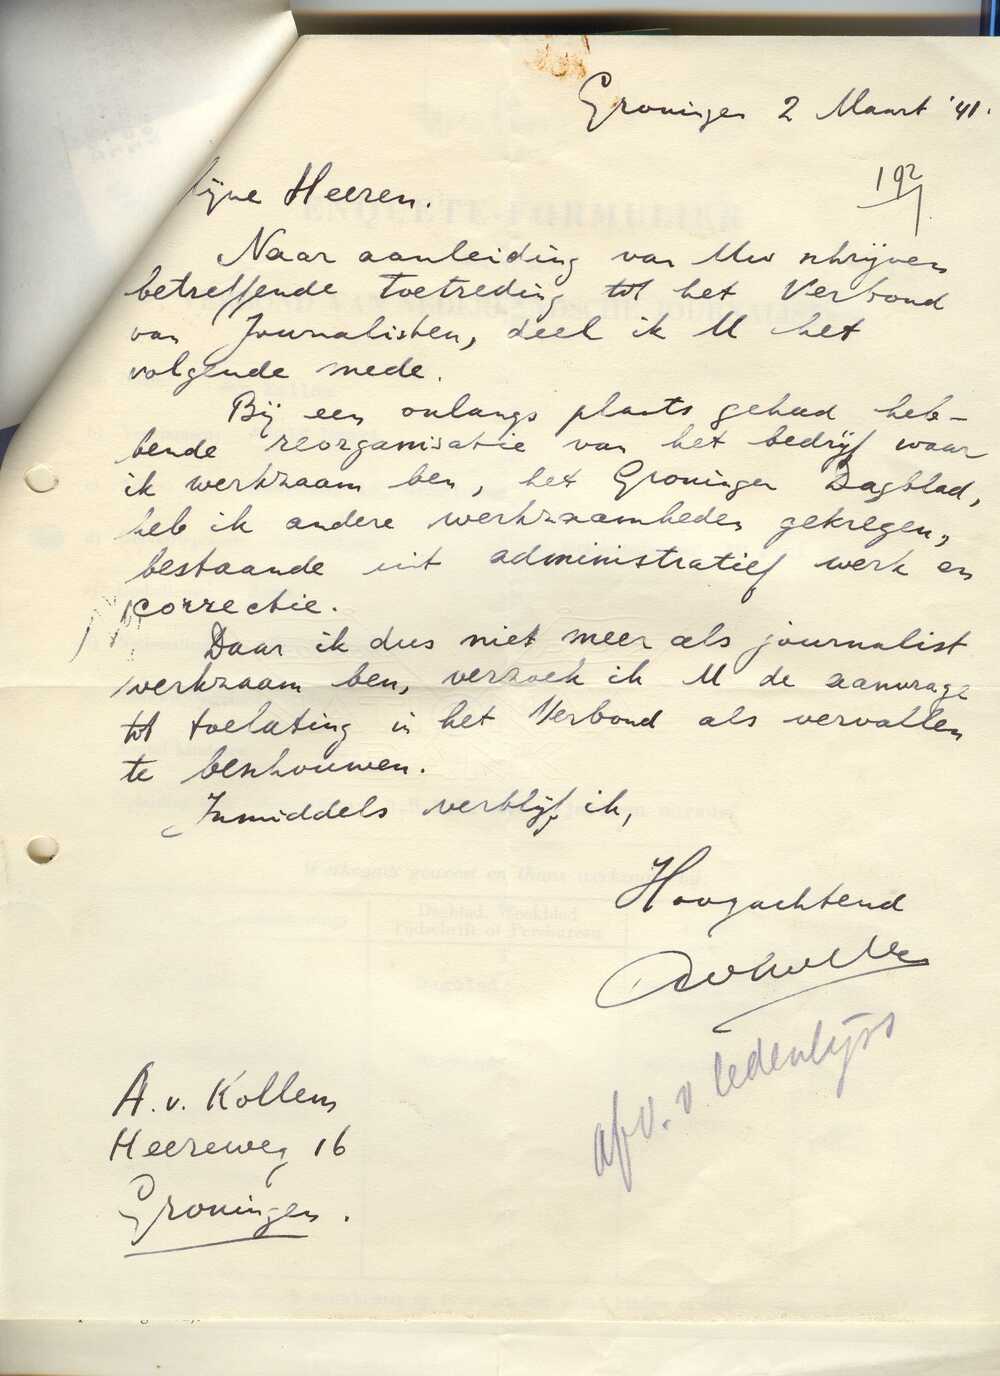 Groningen 2 Maart '41.
192
Mijne Heeren.
Naar aanleiding van Uw schrijven
betreffende toetreding tot het Verbond
van Journalisten, deel ik U het
volgende mede.
Bij een onlangs plaats gehad heb-
bende reorganisatie van het bedrijf waar
ik werkzaam ben, het Groninger Dagblad,
heb ik andere werkzaamheden gekregen,
bestaande uit administratief werk en
correctie.
Daar ik dus niet meer als journalist
werkzaam ben, verzoek ik U de aanvrage
tot toelating in het Verbond als vervallen
te beschouwen.
Inmiddels verblijf ik,
Hoogachtend
afv. v. ledenlijst
A. v. Kollem
Heereweg 16
Groningen.